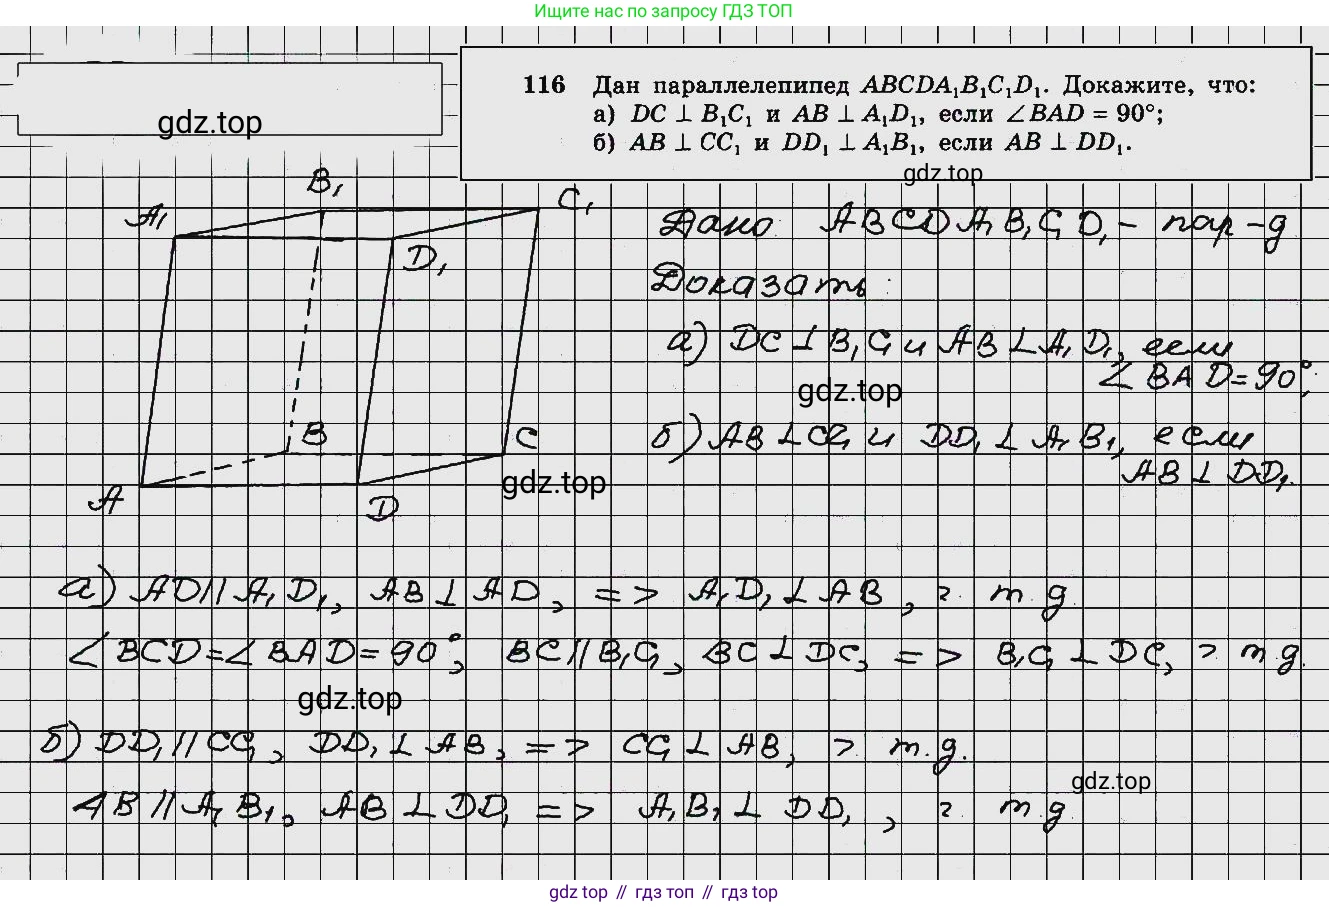 Ищите нас по запросу ГДЗ ТОП
gdz.top
116 Дан параллелепипед ABCDA₁B₁C₁D₁. Докажите, что:
а) DC ⊥ B₁C₁ и AB ⊥ A₁D₁, если ∠BAD = 90°;
б) AB ⊥ CC₁ и DD₁ ⊥ A₁B₁, если AB ⊥ DD₁.
gdz.top
B₁
C₁
A₁
D₁
B
C
A
D
gdz.top
Дано ABCDA₁B₁C₁D₁ - пар-д
Доказать:
а) DC ⊥ B₁C₁ и AB ⊥ A₁D₁, если
∠BAD = 90°;
gdz.top
б) AB ⊥ CC₁ и DD₁ ⊥ A₁B₁, если
AB ⊥ DD₁.
а) AD || A₁D₁, AB ⊥ AD, => A₁D₁ ⊥ AB, ч т д
∠BCD = ∠BAD = 90°, BC || B₁C₁, BC ⊥ DC, => B₁C₁ ⊥ DC, ч т д.
gdz.top
б) DD₁ || CC₁, DD₁ ⊥ AB, => CC₁ ⊥ AB, ч т. д.
gdz.top
AB || A₁B₁, AB ⊥ DD₁ => A₁B₁ ⊥ DD₁, ч т д
gdz top // гдз топ // gdz top